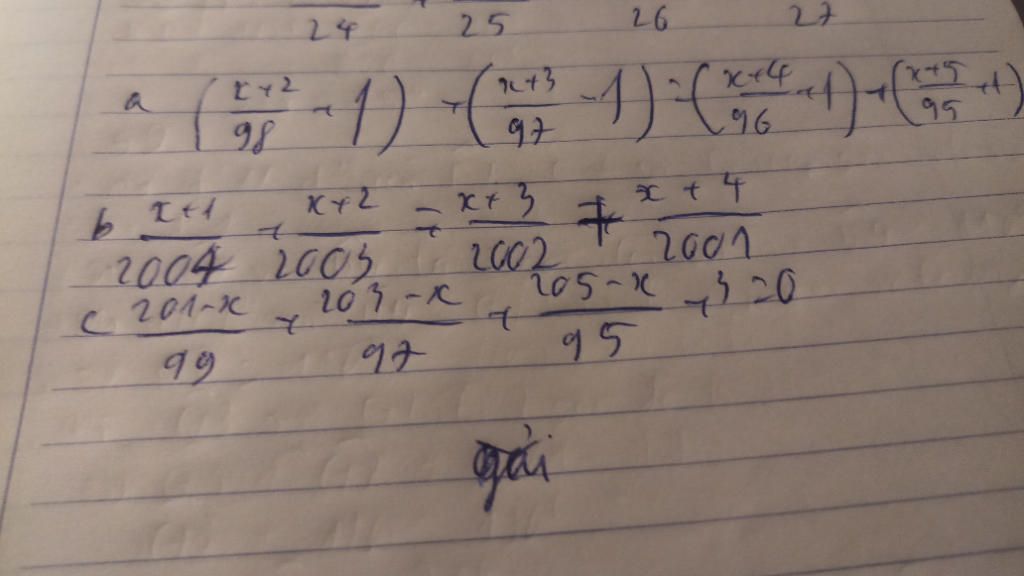 24 25 26 27
a (x+2/98 + 1) + (x+3/97 - 1) = (x+4/96 + 1) + (x+5/95 + 1)
b x+1/2004 + x+2/2003 = x+3/2002 + x+4/2001
c 201-x/99 + 203-x/97 + 205-x/95 + 3 = 0
giải